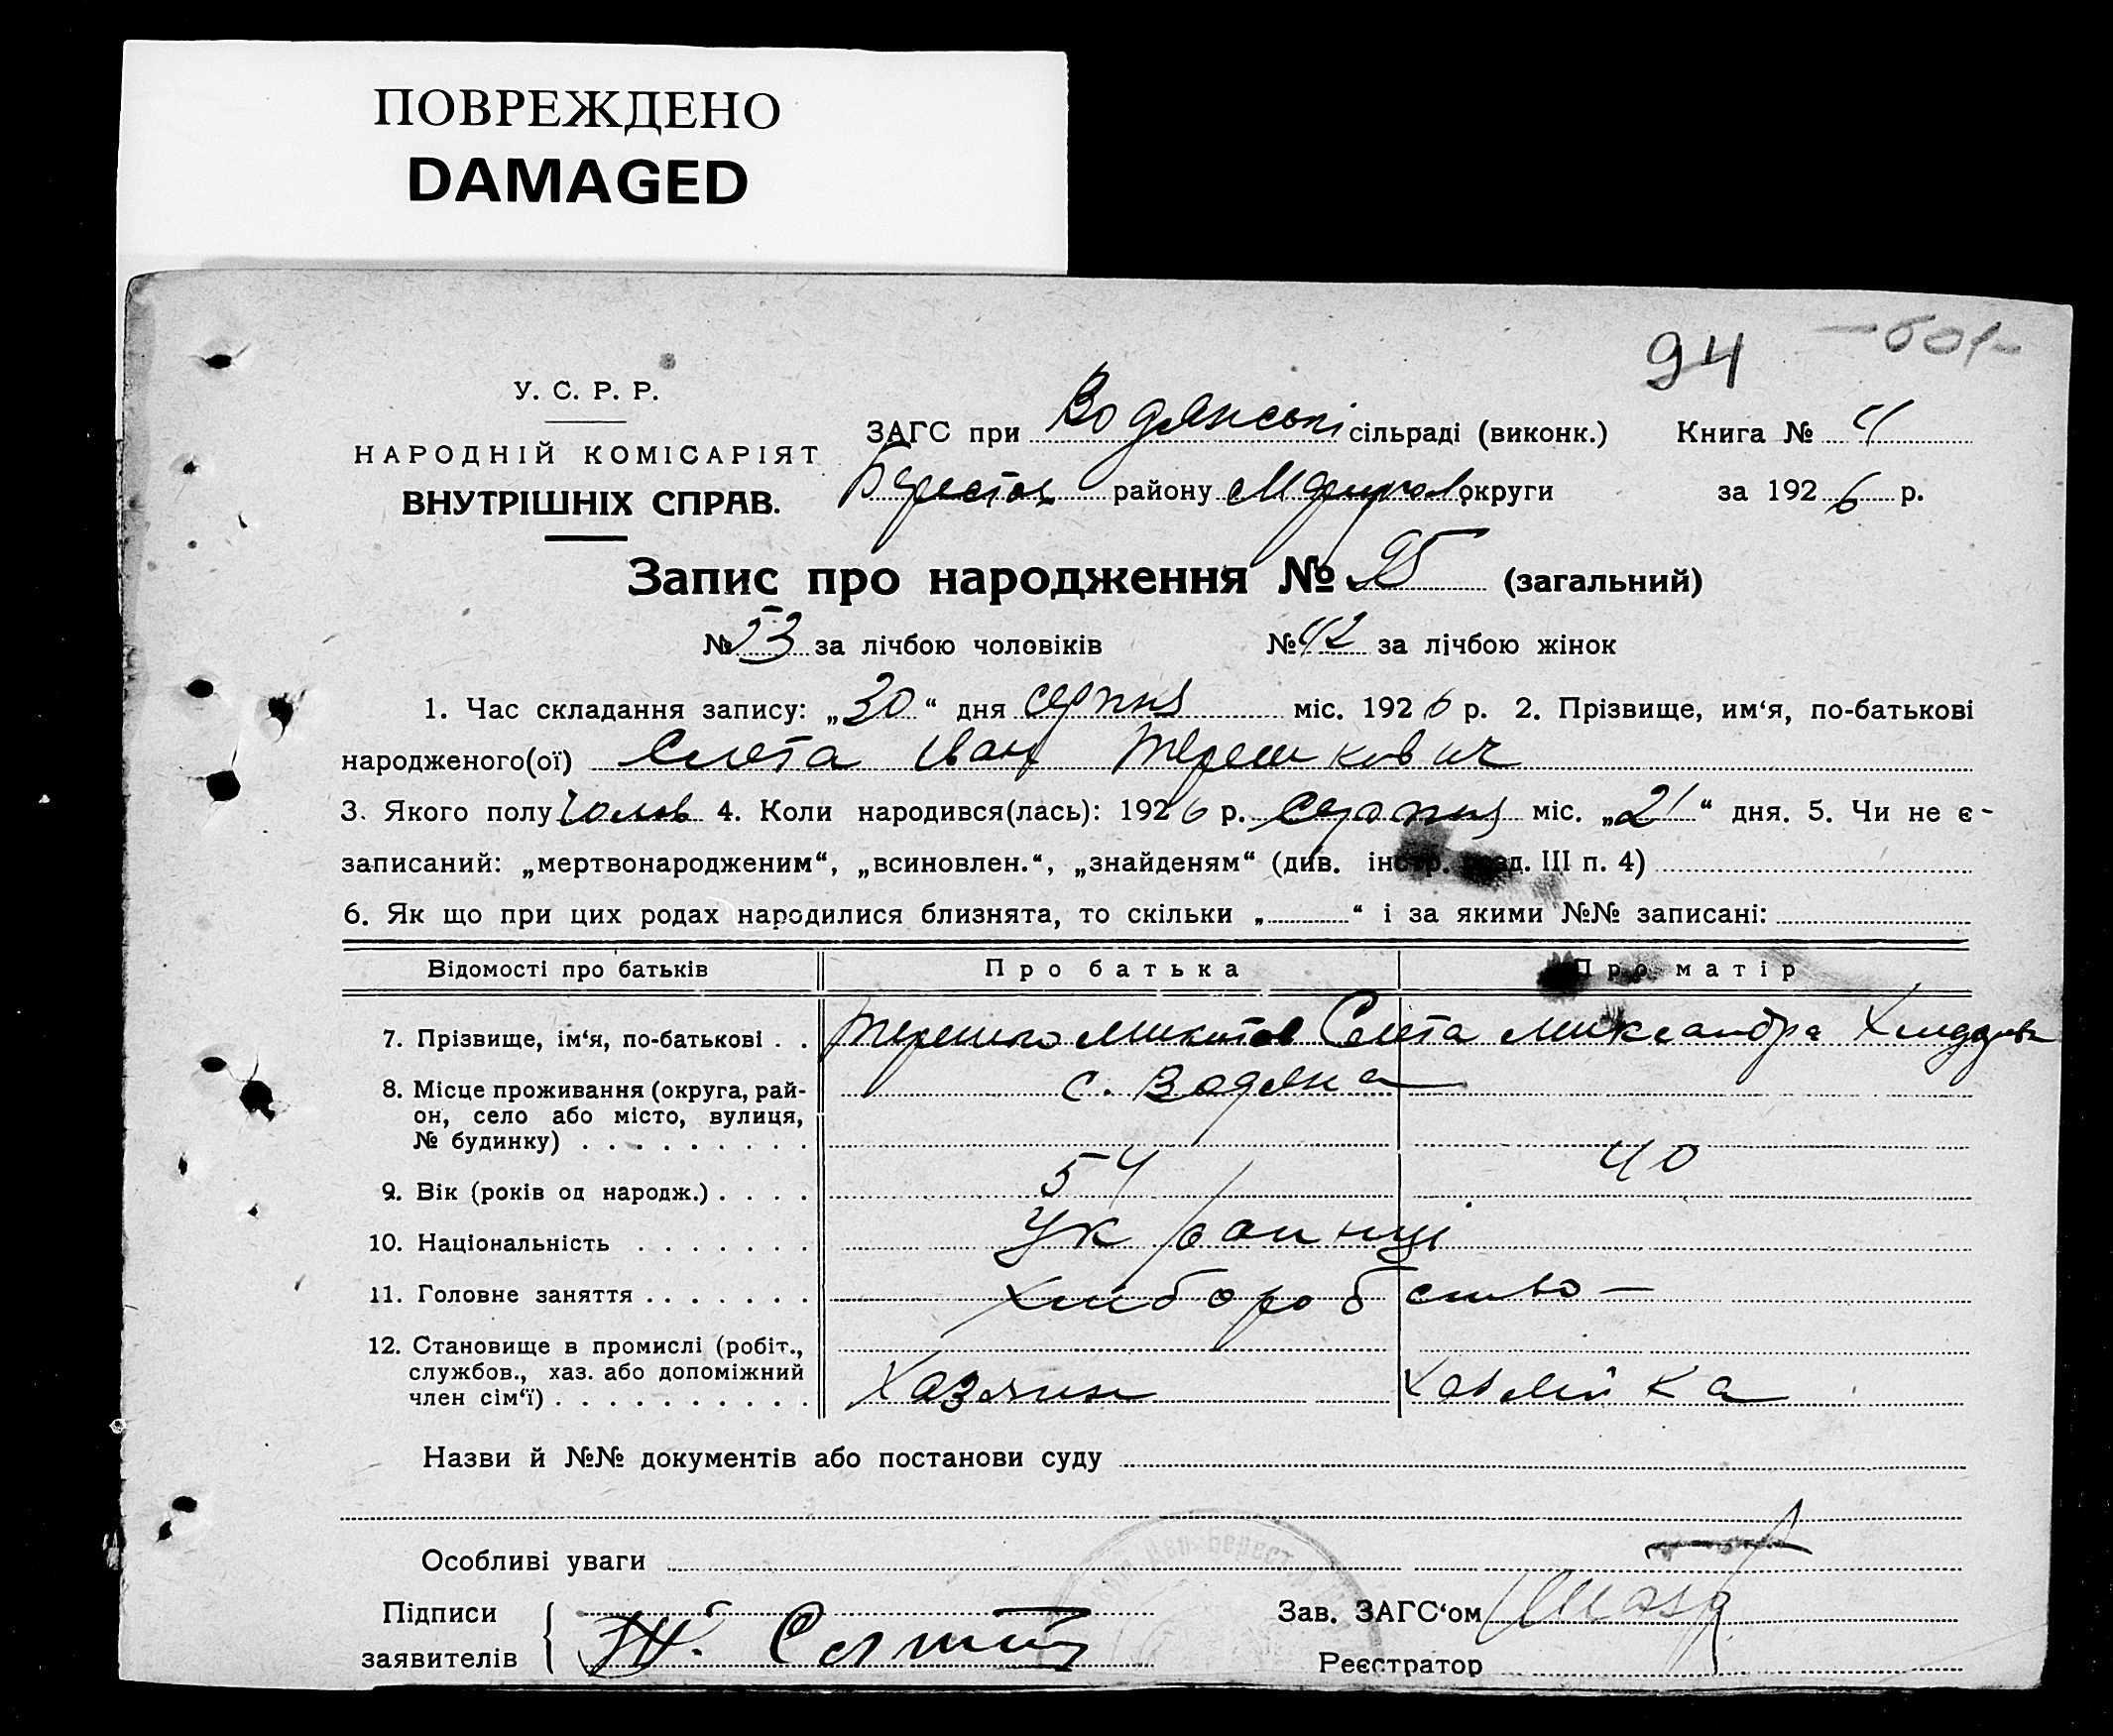 ПОВРЕЖДЕНО
DAMAGED
94
У. С. Р. Р.
НАРОДНІЙ КОМІСАРІЯТ
ВНУТРІШНІХ СПРАВ.
ЗАГС при Водянські сільраді (виконк.) Книга № 4
Берестов району Маріупол округи за 1926 р.
Запис про народження № 95 (загальний)
№ 53 за лічбою чоловіків № 42 за лічбою жінок
1. Час складання запису: „30“ дня серпня міс. 1926 р. 2. Прізвище, им‘я, по-батькові
народженого(ої) Слєта Іван Терешкович
3. Якого полу Чолов 4. Коли народився(лась): 1926 р. Серпня міс. „21“ дня. 5. Чи не є-
записаний: „мертвонародженим“, „всиновлен.“, „знайденям“ (див. інстр. розд. III п. 4)
6. Як що при цих родах народилися близнята, то скільки „ “ і за якими №№ записані:
Відомості про батьків Про батька Про матір
7. Прізвище, ім‘я, по-батькові . . Терешко Микитов Слєта
8. Місце проживання (округа, рай- с. Водяна
он, село або місто, вулиця,
№ будинку) . . . . . . . . .
9. Вік (років од народж.) . . . . 54 40
10. Національність . . . . . . . Украинці
11. Головне заняття . . . . . . . Хлиборобство —
12. Становище в промислі (робіт.,
службов., хаз. або допоміжний
член сім‘ї) . . . . . . . . . . Хазяин Хазяйка
Назви й №№ документів або постанови суду
Особливі уваги
Підписи
заявителів
Зав. ЗАГС‘ом
Реєстратор